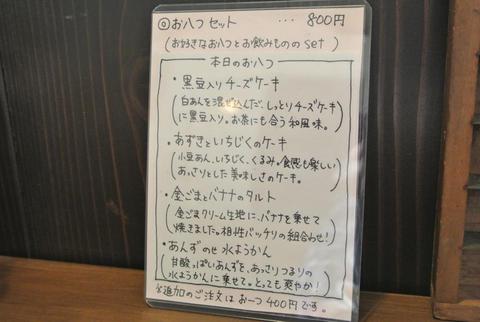 ◎お八つセット ... 800円
(お好きなお八つとお飲みもののset)
本日のお八つ
・黒豆入りチーズケーキ
(白あんを混ぜ込んだ、しっとりチーズケーキ
に黒豆入り。お茶にも合う和風味。)
・あずきといちじくのケーキ
(小豆あん、いちじく、くるみ。食感も楽しい
あっさりとした美味しさのケーキ。)
・金ごまとバナナのタルト
(金ごまクリーム生地に、バナナを乗せて
焼きました。相性バッチリの組合わせ!)
・あんずのせ水ようかん
(甘酸っぱいあんずを、あっさりつるりの
水ようかんに乗せて。とっても爽やか!)
※追加のご注文はお一つ400円です。